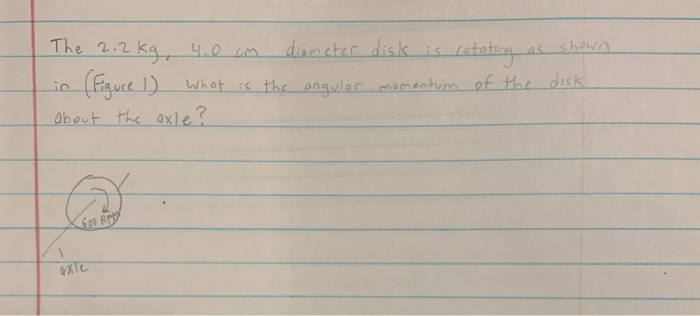 The 2.2 kg, 4.0 cm diameter disk is rotating as shown
in (Figure 1) What is the angular momentum of the disk
about the axle?
600 RPM
axle